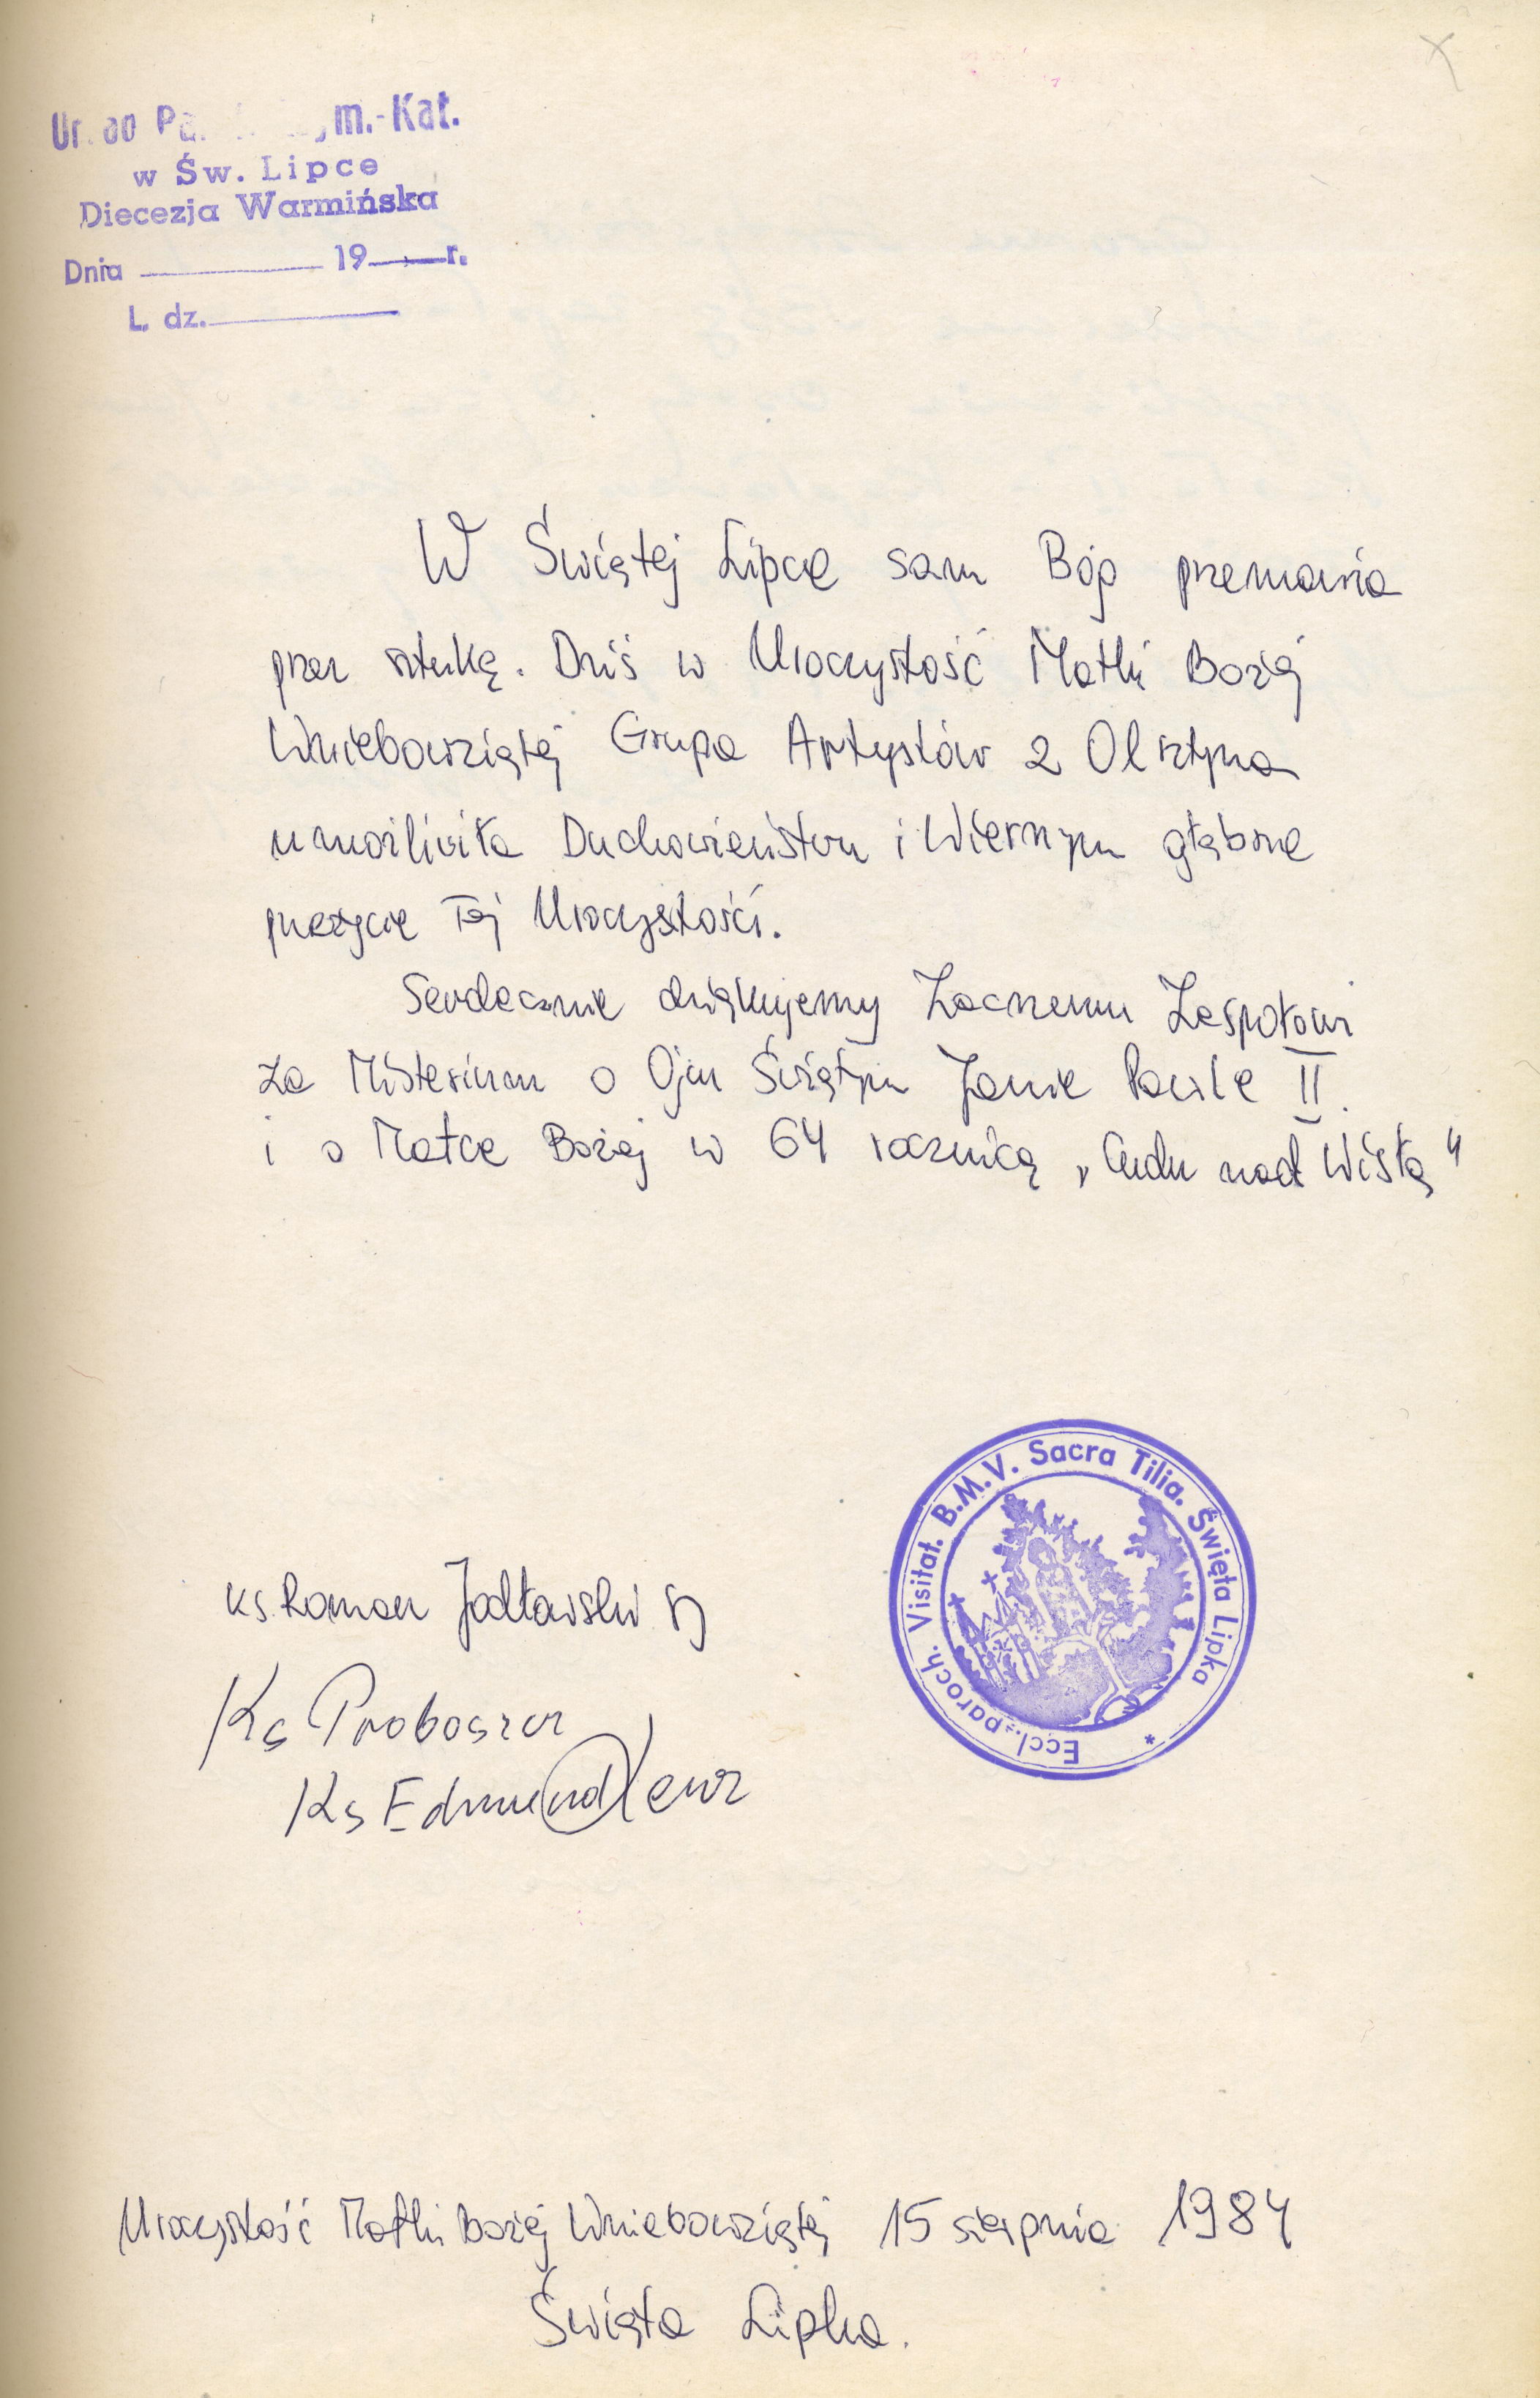 m.-Kat.
w Św. Lipce
Diecezja Warmińska
Dnia 19 r.
L. dz.
W Świętej Lipce sam Bóg przemawia
przez sztukę. Dziś w Uroczystość Matki Bożej
Wniebowziętej Grupa Artystów z Olsztyna
umożliwiła Duchowieństwu i Wiernym głębsze
przeżycie Tej Uroczystości.
Serdecznie dziękujemy Zacnemu Zespołowi
za Misterium o Ojcu Świętym Janie Pawle II.
i o Matce Bożej w 64 rocznicę „Cudu nad Wisłą"
Eccl.-paroch. Visitat. B.M.V. Sacra Tilia. Święta Lipka *
ks. Roman Jodłowski SJ
Ks Proboszcz
Ks Edmund
Uroczystość Matki Bożej Wniebowziętej 15 sierpnia 1984
Święta Lipka.